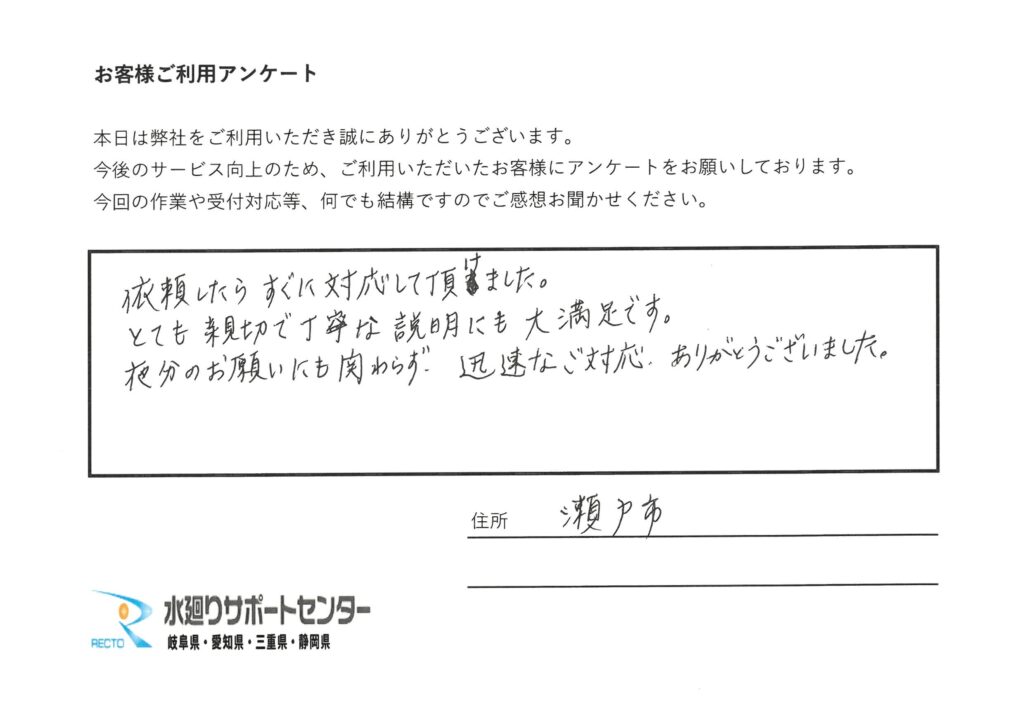 お客様ご利用アンケート
本日は弊社をご利用いただき誠にありがとうございます。
今後のサービス向上のため、ご利用いただいたお客様にアンケートをお願いしております。
今回の作業や受付対応等、何でも結構ですのでご感想お聞かせください。
依頼したらすぐに対応して頂けました。
とても親切で丁寧な説明にも大満足です。
夜分のお願いにも関わらず、迅速なご対応、ありがとうございました。
住所 瀬戸市
RECTO 水廻りサポートセンター
岐阜県・愛知県・三重県・静岡県